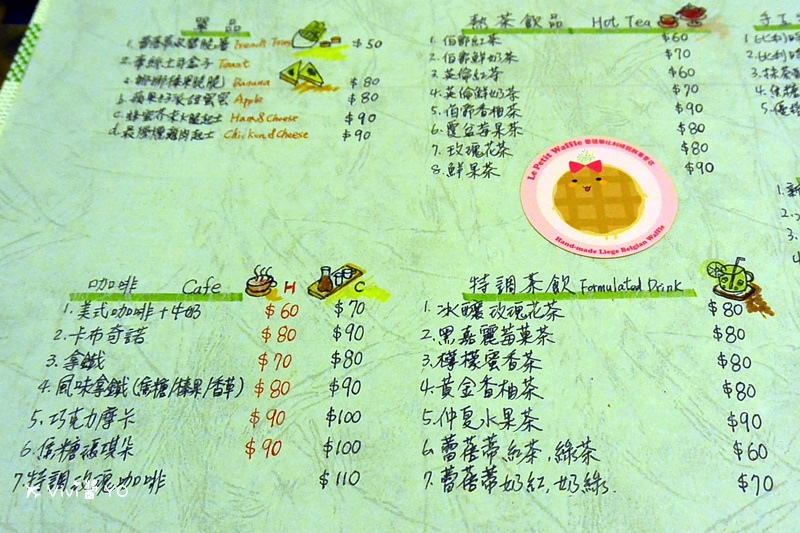 單品
1. 蕾蒂歐歐脆脆薯 French Fries $50
2. 華綠土司盒子 Toast
a. 娜娜榛果脆脆 Banana $80
b. 蘋果好家甜蜜蜜 Apple $80
c. 蜂蜜芥末火腿起士 Ham&Cheese $90
d. 晨燻燻雞肉起士 Chicken&Cheese $90
熱茶飲品 Hot Tea
1. 伯爵紅茶 $60
2. 伯爵鮮奶茶 $70
3. 英倫紅茶 $60
4. 英倫鮮奶茶 $70
5. 伯爵香柚茶 $90
6. 覆盆莓果茶 $80
7. 玫瑰花茶 $80
8. 鮮果茶 $90
手工
1. 比利時
2. 比利
3. 抹茶
4. 焦糖
5. 優格
1. 新
2.
3.
4.
Le Petit Waffle 蕾蓓蒂比利時鬆餅專賣店
Hand-made Liege Belgian Waffle
咖啡 Cafe H C
1. 美式咖啡+牛奶 $60 $70
2. 卡布奇諾 $80 $90
3. 拿鐵 $70 $80
4. 風味拿鐵(焦糖/榛果/香草) $80 $90
5. 巧克力摩卡 $90 $100
6. 焦糖瑪琪朵 $90 $100
7. 特調玫瑰咖啡 $110
特調茶飲 Formulated Drink
1. 冰釀玫瑰花茶 $80
2. 黑嘉麗莓菓茶 $80
3. 檸檬蜜香茶 $80
4. 黃金香柚茶 $80
5. 仲夏水果茶 $90
6. 蕾蓓蒂紅茶,綠茶 $60
7. 蕾蓓蒂奶紅,奶綠. $70